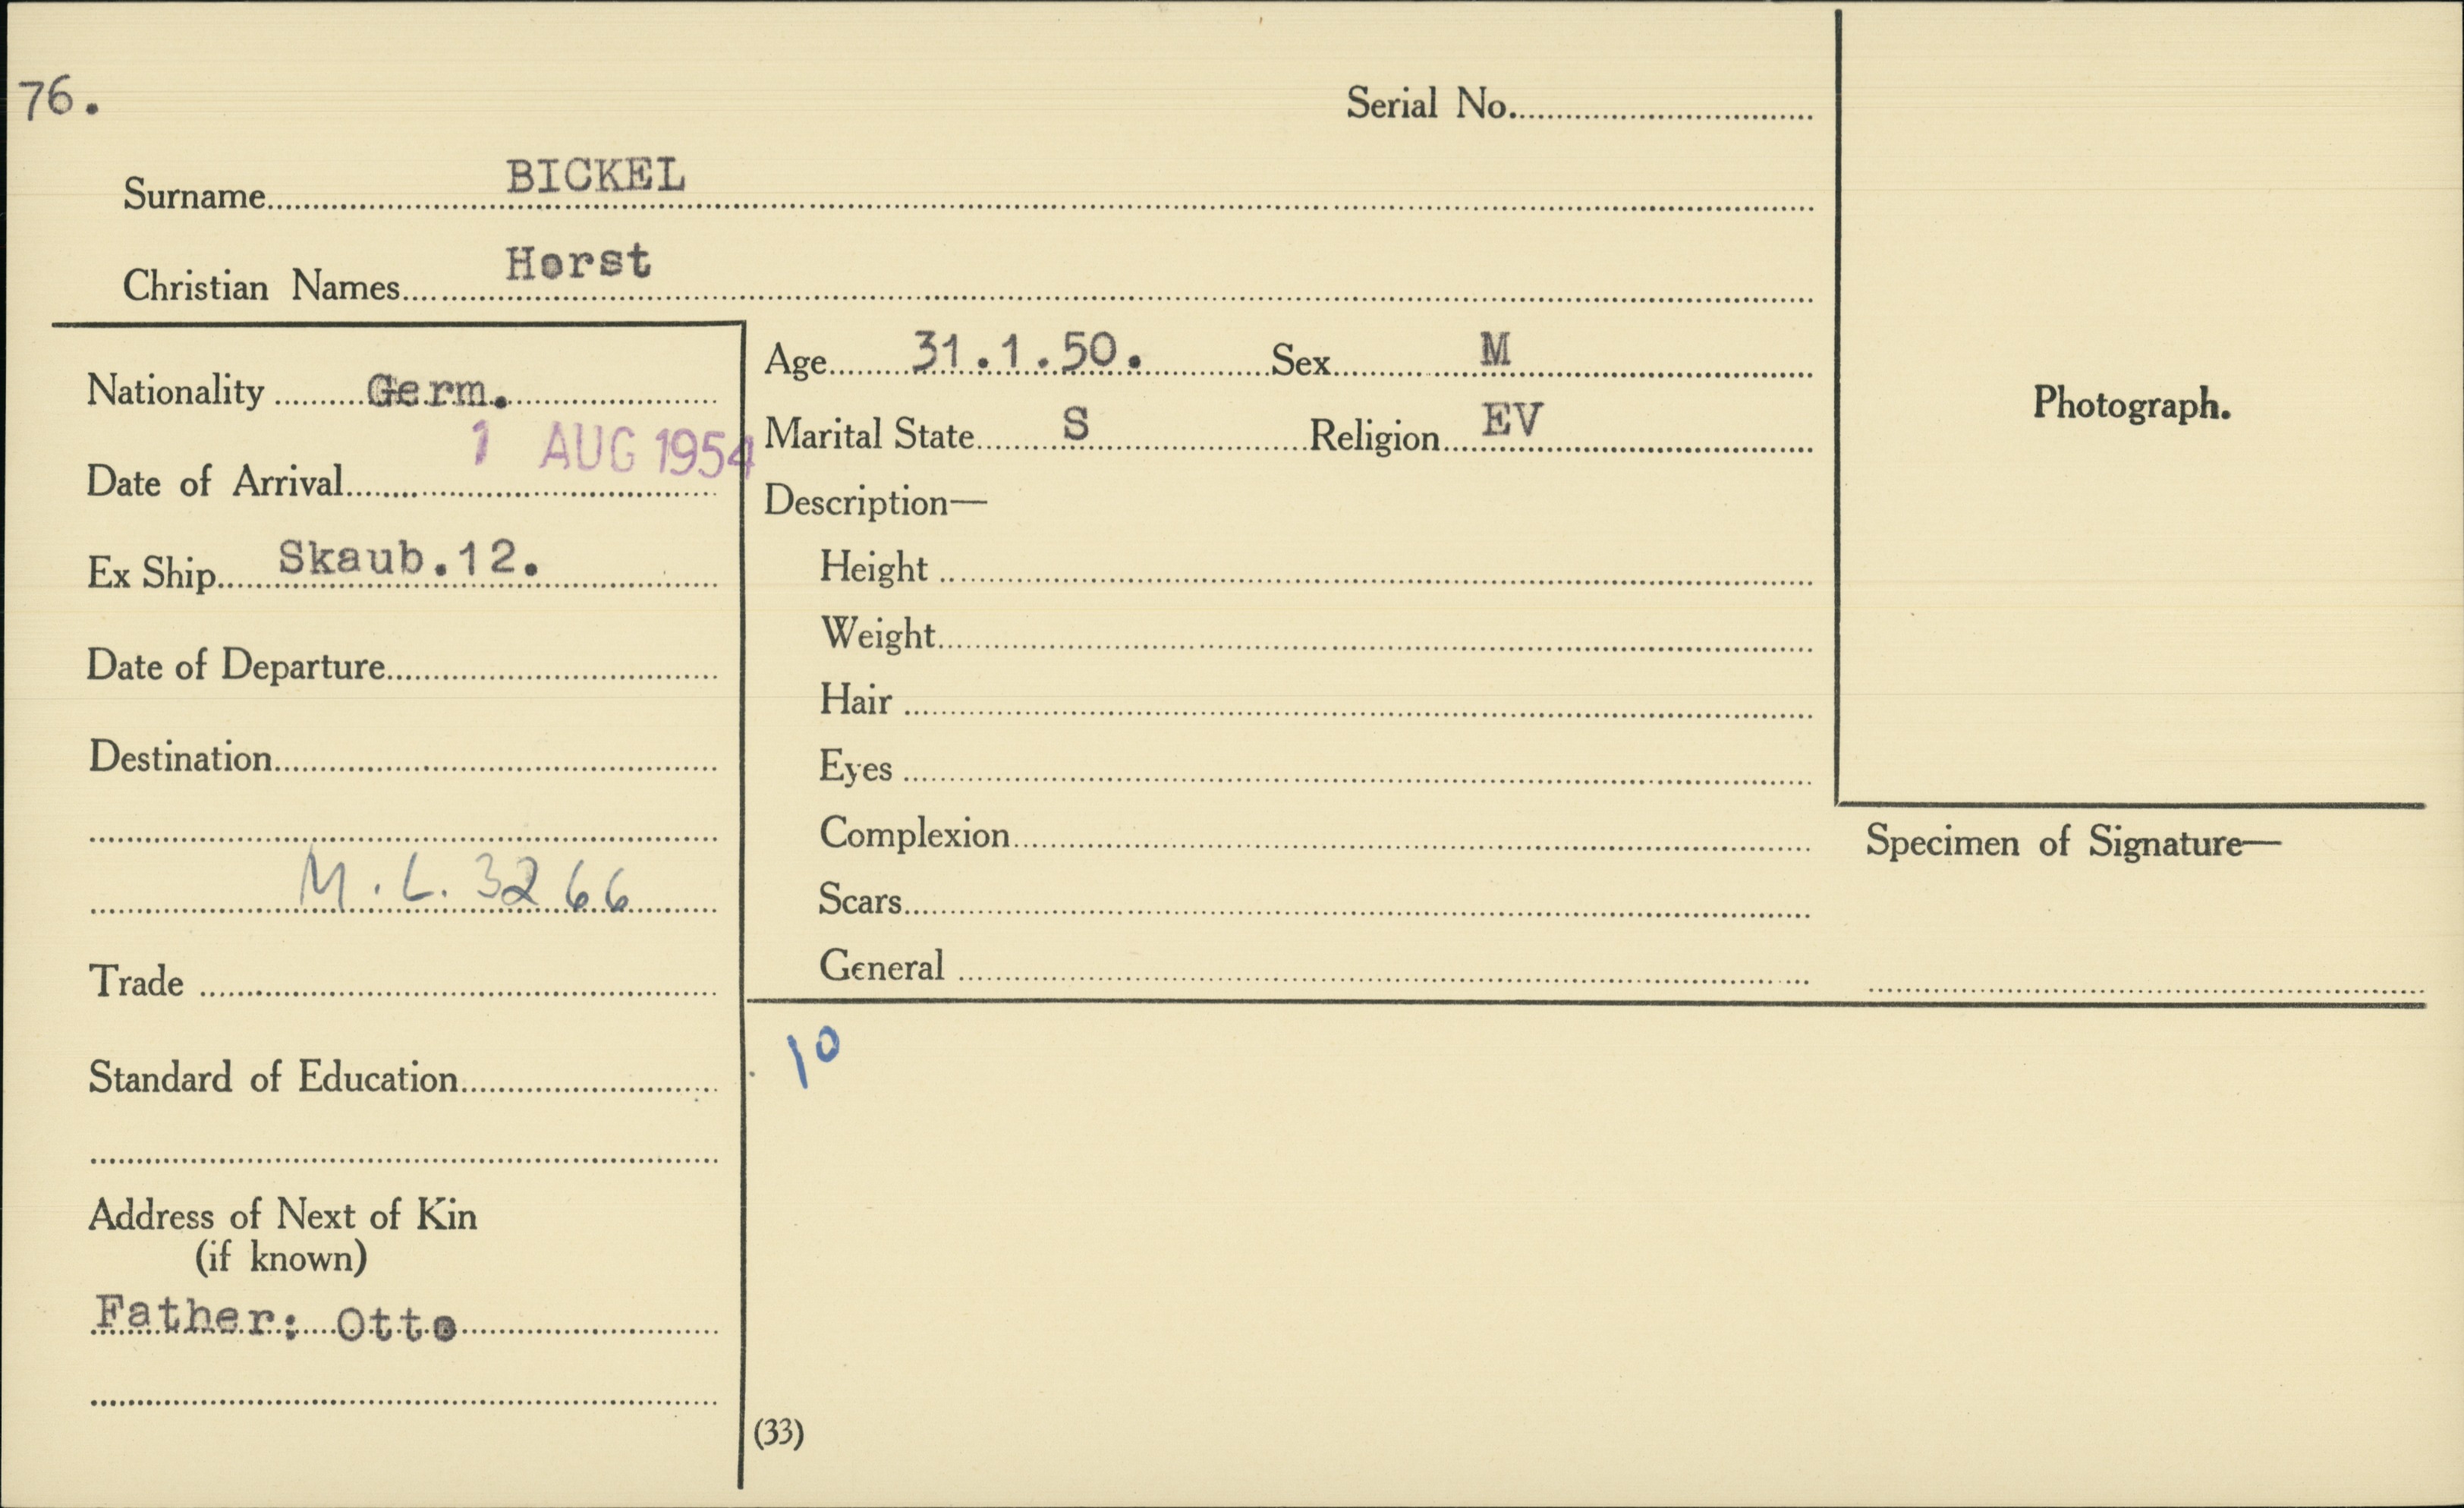 76.
Serial No.
Surname BICKEL
Christian Names Horst
Nationality Germ.
Date of Arrival 1 AUG 1954
Ex Ship Skaub.12.
Date of Departure
Destination
M. L. 3266
Trade
Standard of Education
Address of Next of Kin
(if known)
Father: Otto
Age 31.1.50. Sex M
Marital State S Religion EV
Description—
Height
Weight
Hair
Eyes
Complexion
Scars
General
10
(33)
Photograph.
Specimen of Signature—